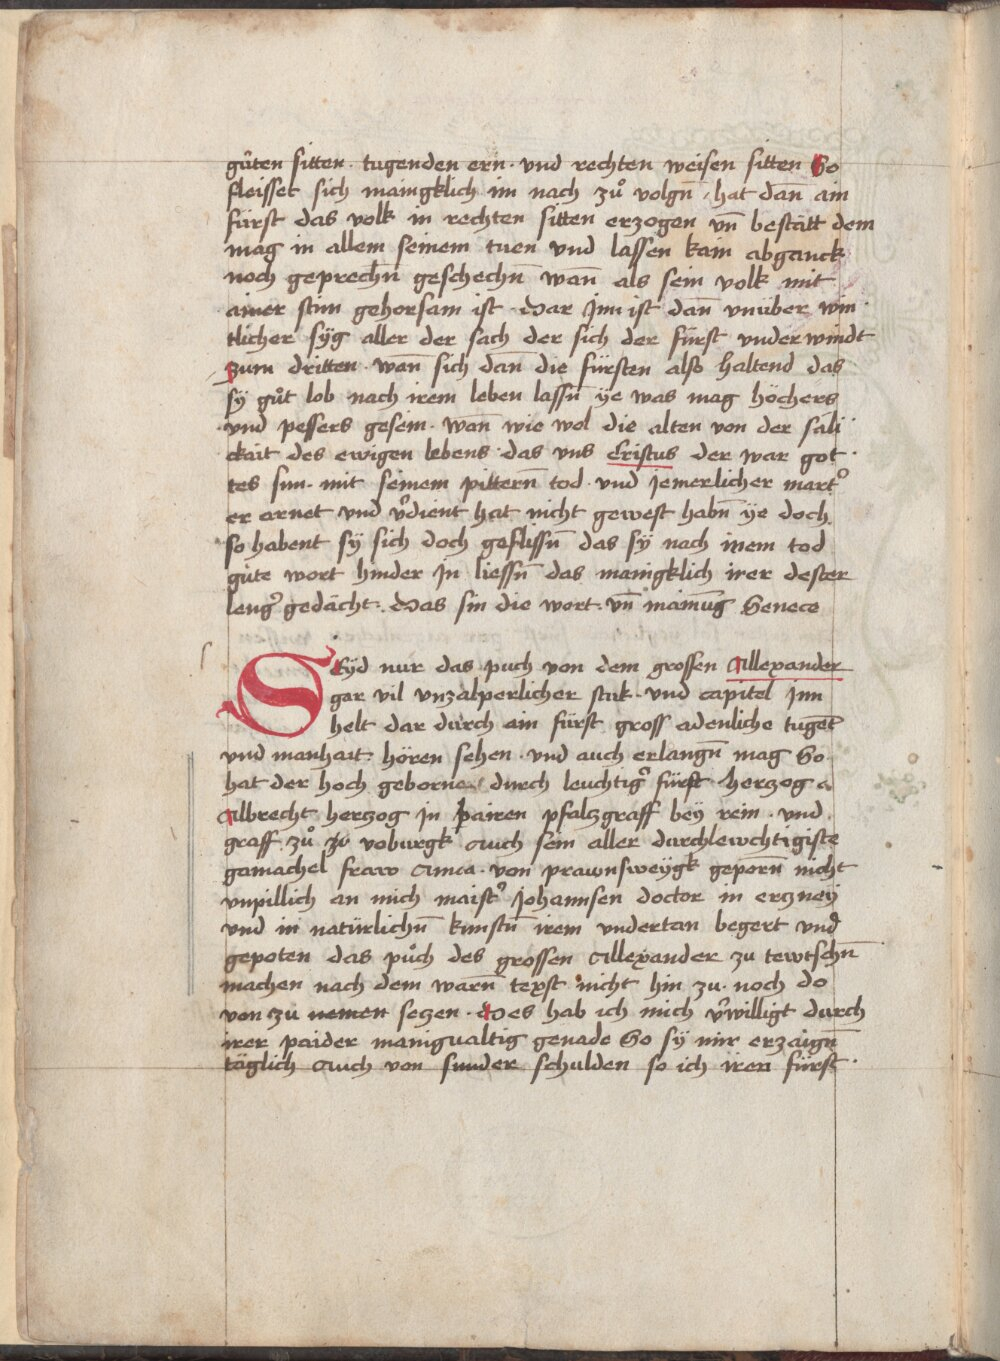 gůten sitten · tugenden ern · vnd rechten weisen sitten So
fleisset sich mainigklich im nach zů volgn̄ · hat dan̄ ain
fürst das volk in rechten sitten erzogen vn̄ bestätt dem
mag in allem seinem tuen vnd lassen kain abganck
noch geprechn̄ geschechn̄ wan̄ als sein volk mit
ainer stim gehorsam ist · Dar Jnn ist dan̄ vnüber win
tlicher syg aller der sach der sich der fürst vnderwindt
zum dritten · wan̄ sich dan̄ die fürsten also haltend das
sÿ gůt lob nach irem leben lassn̄ ÿe was mag höchers
vnd pessers gesein · wan̄ wie wol die alten von der säli
ckait des ewigen lebens · das vns Cristus der war got
tes sun · mit seinem pittern̄ tod · vnd jemerlicher mart᾽
er arnet vnd v᾽dient hat nicht gewest habn̄ ÿe doch
so habent sÿ sich doch geflissn̄ das sÿ nach irem tod
gůte wort hinder Jn liessn̄ das manigklich irer dester
leng᾽ gedächt · Das sin die wort · vn̄ mainūg Senece
SEyd nur das puch von dem grossen Allexander
gar vil vnzalperlicher stuk · vnd capitel Jnn
helt dar durch ain fürst gross adenliche tugēt
vnd manhait · hören sehen · vnd auch erlangn̄ mag So
hat der hoch geborne durch leuchtig᾽ fürst herzog
Albrecht herzog in pairen pfalzgraff beÿ rein · vnd
graff zů zu voburgk Auch sein aller durchlewchtigiste
gamachel fraw Anna · von prawnsweÿgk geporn̄ nicht
vnpillich an mich maist᾽ Johannsen doctor in erczneÿ
vnd in natürlichn̄ kunstn̄ irem vndertan begert vnd
gepoten das půch des grossen Allexander zu tewtschn̄
machen nach dem warn̄ texst nicht hin zu · noch do
von zu nemen seczen · Des hab ich mich v᾽willigt durch
irer paider manigualtig genade So sÿ mir erzaign̄
täglich Auch von sunder schulden so ich iren fürst